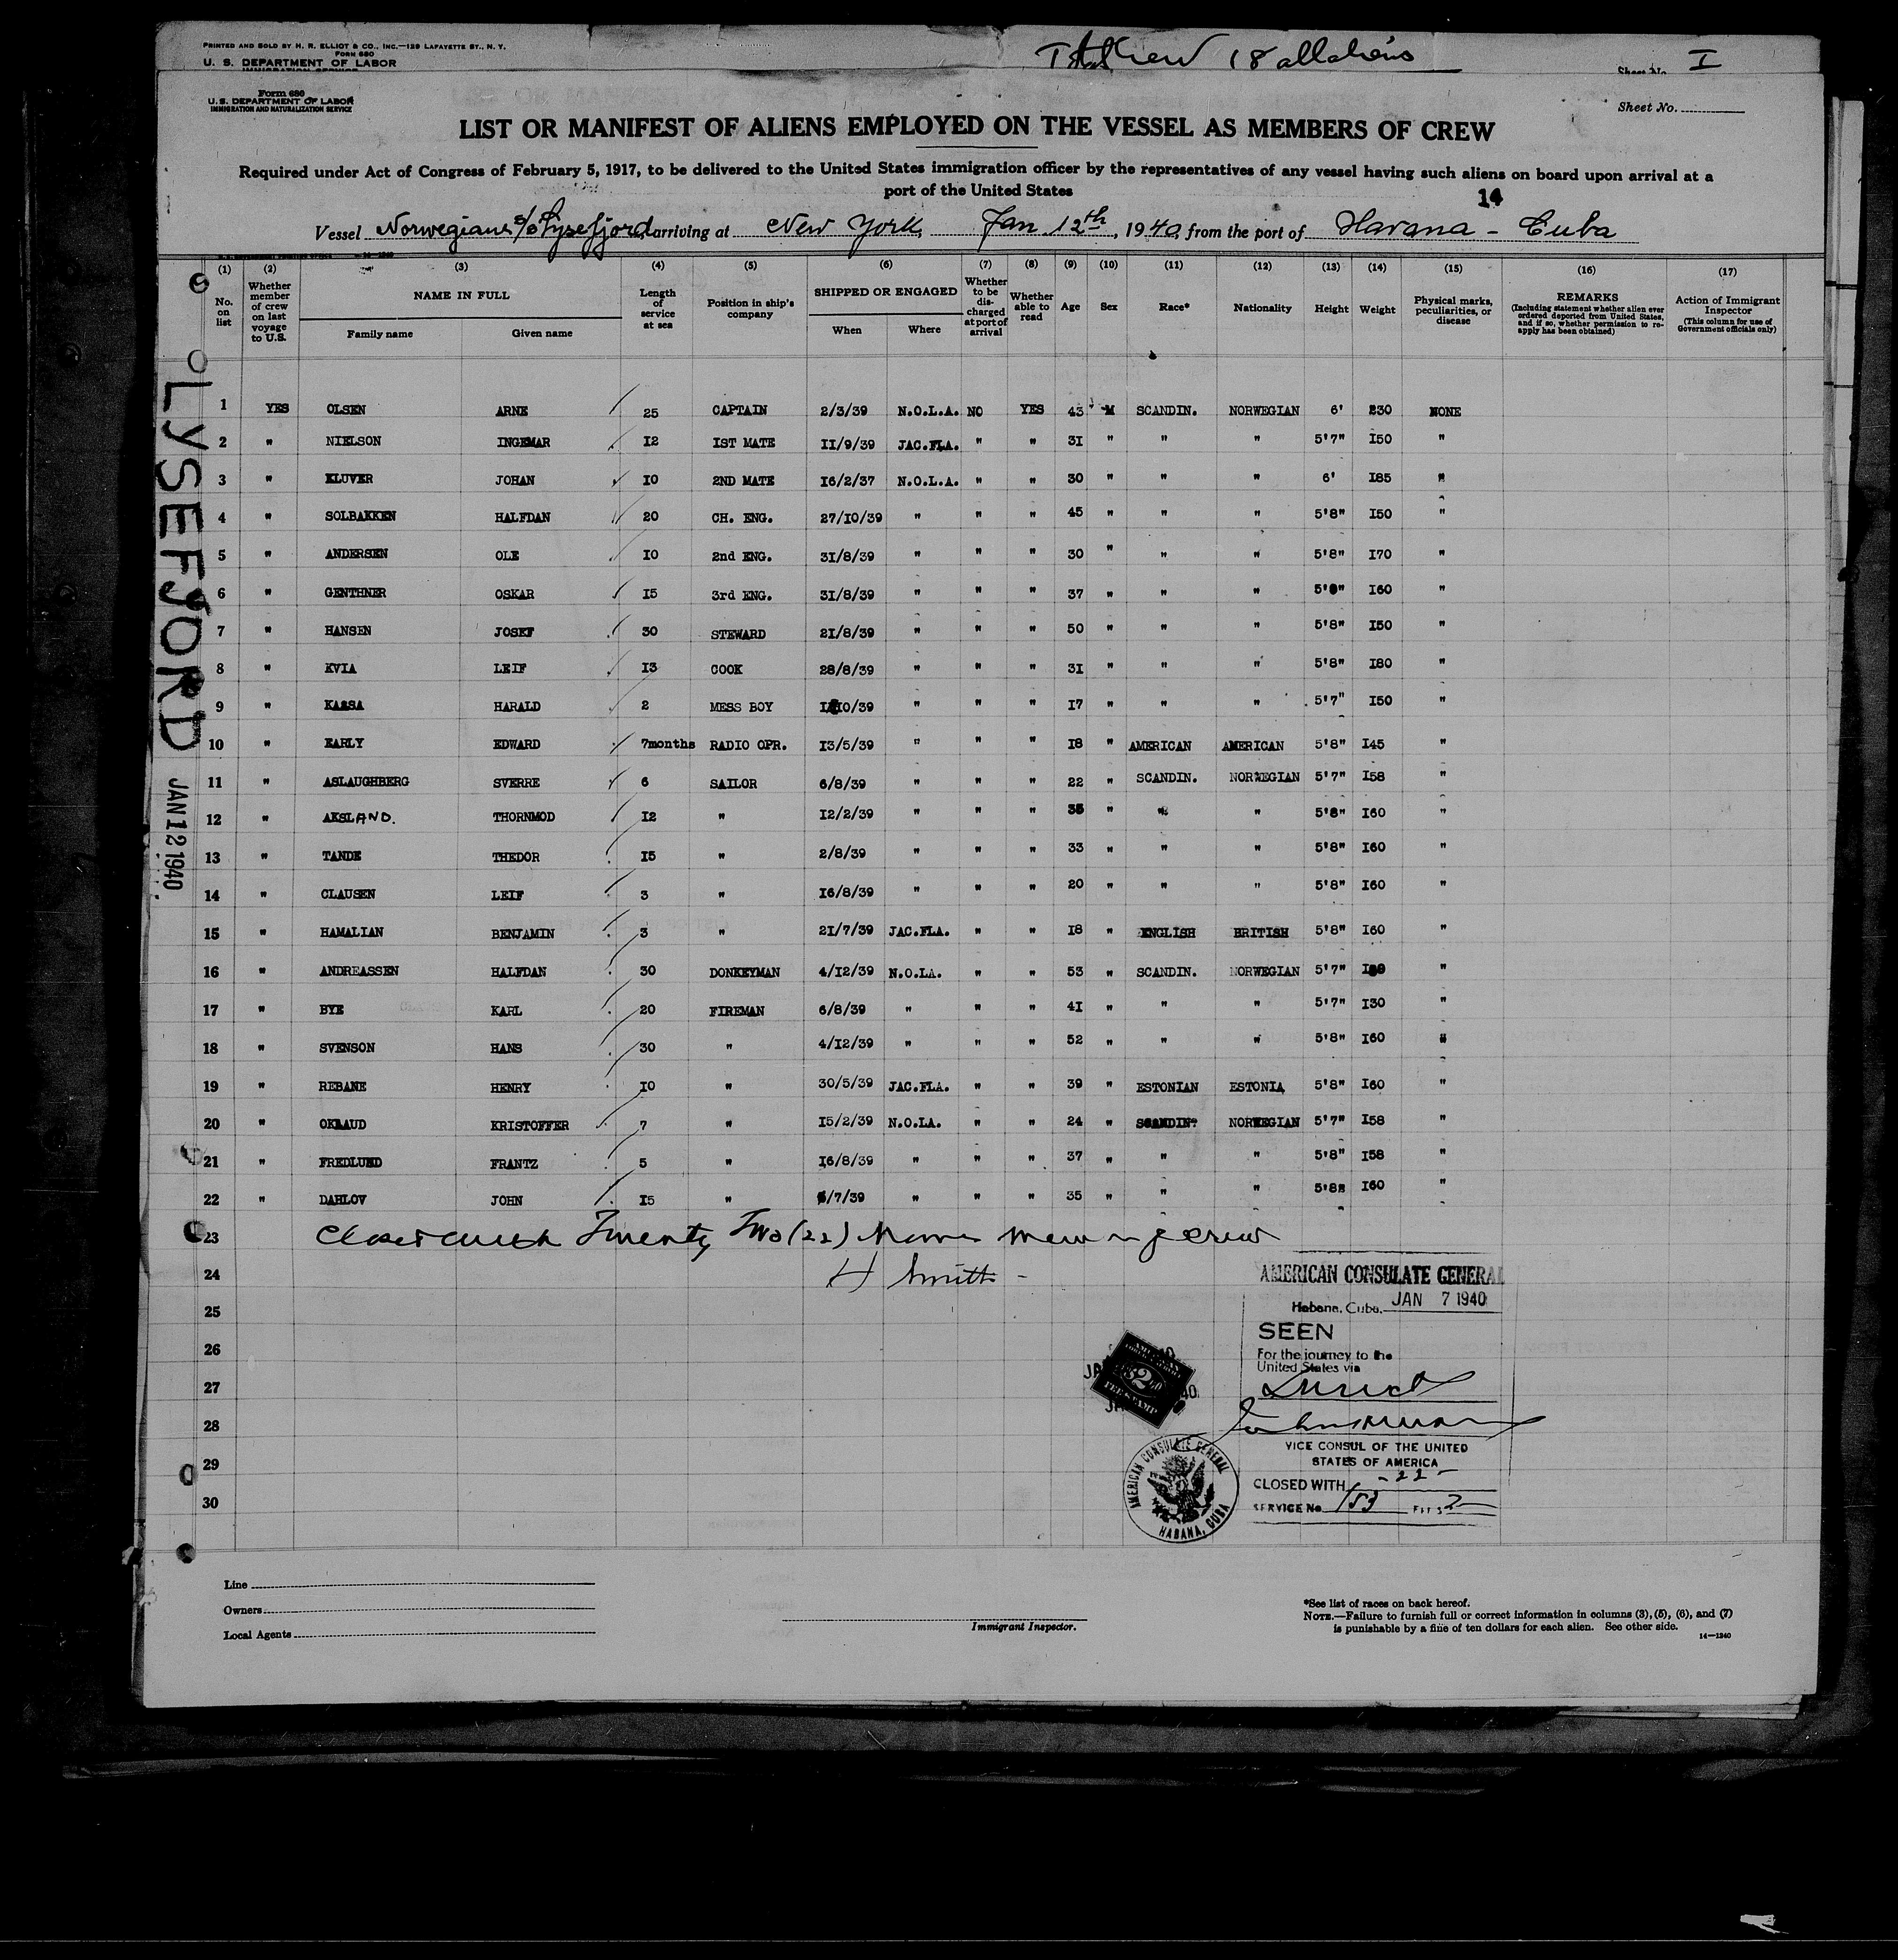 PRINTED AND SOLD BY H. R. ELLIOT & CO., INC.—129 LAFAYETTE ST., N. Y.
FORM 680
U. S. DEPARTMENT OF LABOR
18
Sheet No. I
Form 680
U.S. DEPARTMENT OF LABOR
IMMIGRATION AND NATURALIZATION SERVICE
Sheet No.
LIST OR MANIFEST OF ALIENS EMPLOYED ON THE VESSEL AS MEMBERS OF CREW
Required under Act of Congress of February 5, 1917, to be delivered to the United States immigration officer by the representatives of any vessel having such aliens on board upon arrival at a
port of the United States
14
Vessel Norwegian s/s Lysefjord, arriving at New York, Jan 12th, 1940, from the port of Havana - Cuba
(1) (2) (3) (4) (5) (6) (7) (8) (9) (10) (11) (12) (13) (14) (15) (16) (17)
No. on list
Whether member of crew on last voyage to U.S.
NAME IN FULL
Family name Given name
Length of service at sea
Position in ship's company
SHIPPED OR ENGAGED
When Where
Whether to be discharged at port of arrival
Whether able to read
Age
Sex
Race*
Nationality
Height
Weight
Physical marks, peculiarities, or disease
REMARKS
(Including statement whether alien ever ordered deported from United States, and if so, whether permission to re-apply has been obtained)
Action of Immigrant Inspector
(This column for use of Government officials only)
1 YES OLSEN ARNE 25 CAPTAIN 2/3/39 N.O.L.A. NO YES 43 M SCANDIN. NORWEGIAN 6' 230 NONE
2 " NIELSON INGEMAR I2 IST MATE II/9/39 JAC.FLA. " " 3I " " " 5'7" I50 "
3 " KLUVER JOHAN I0 2ND MATE I6/2/37 N.O.L.A. " " 30 " " " 6' I85 "
4 " SOLBAKKEN HALFDAN 20 CH. ENG. 27/I0/39 " " " 45 " " " 5'8" I50 "
5 " ANDERSEN OLE I0 2nd ENG. 3I/8/39 " " " 30 " " " 5'8" I70 "
6 " GENTHNER OSKAR I5 3rd ENG. 3I/8/39 " " " 37 " " " I60 "
7 " HANSEN JOSEF 30 STEWARD 2I/8/39 " " " 50 " " " 5'8" I50 "
8 " KVIA LEIF I3 COOK 28/8/39 " " " 3I " " " 5'8" I80 "
9 " HARALD 2 MESS BOY " " " I7 " " " 5'7" I50 "
10 " EARLY EDWARD 7months RADIO OPR. I3/5/39 " " " I8 " AMERICAN AMERICAN 5'8" I45 "
11 " ASLAUGHBERG SVERRE 6 SAILOR 6/8/39 " " " 22 " SCANDIN. NORWEGIAN 5'7" I58 "
12 " AKSLAND. THORNMOD I2 " I2/2/39 " " " 35 " " " 5'8" I60 "
13 " TANDE THEDOR I5 " 2/8/39 " " " 33 " " " 5'8" I60 "
14 " CLAUSEN LEIF 3 " I6/8/39 " " " 20 " " " 5'8" I60 "
15 " HAMALIAN BENJAMIN 3 " 2I/7/39 JAC.FLA. " " I8 " ENGLISH BRITISH 5'8" I60 "
16 " ANDREASSEN HALFDAN 30 DONKEYMAN 4/I2/39 N.O.LA. " " 53 " SCANDIN. NORWEGIAN 5'7" "
17 " BYE KARL 20 FIREMAN 6/8/39 " " " 4I " " " 5'7" I30 "
18 " SVENSON HANS 30 " 4/I2/39 " " " 52 " " " 5'8" I60 "
19 " REBANE HENRY I0 " 30/5/39 JAC.FLA. " " 39 " ESTONIAN ESTONIA 5'8" I60 "
20 " KRISTOFFER 7 " I5/2/39 N.O.LA. " " 24 " SCANDIN. NORWEGIAN 5'7" I58 "
21 " FREDLUND FRANTZ 5 " I6/8/39 " " " 37 " " " 5'8" I58 "
22 " DAHLOV JOHN I5 " /7/39 " " " 35 " " " 5'8" I60 "
23 Twenty Two (22)
24 H Smith -
25
26
27
28
29
30
LYSEFJORD
JAN 12 1940
AMERICAN CONSULATE GENERAL
Habana, Cuba, JAN 7 1940
SEEN
For the journey to the
United States via
VICE CONSUL OF THE UNITED
STATES OF AMERICA
CLOSED WITH -22-
SERVICE No. 153
AMERICAN CONSULATE GENERAL
HABANA, CUBA
Line
Owners
Local Agents
Immigrant Inspector.
*See list of races on back hereof.
NOTE.—Failure to furnish full or correct information in columns (3), (5), (6), and (7)
is punishable by a fine of ten dollars for each alien. See other side.
14—1240